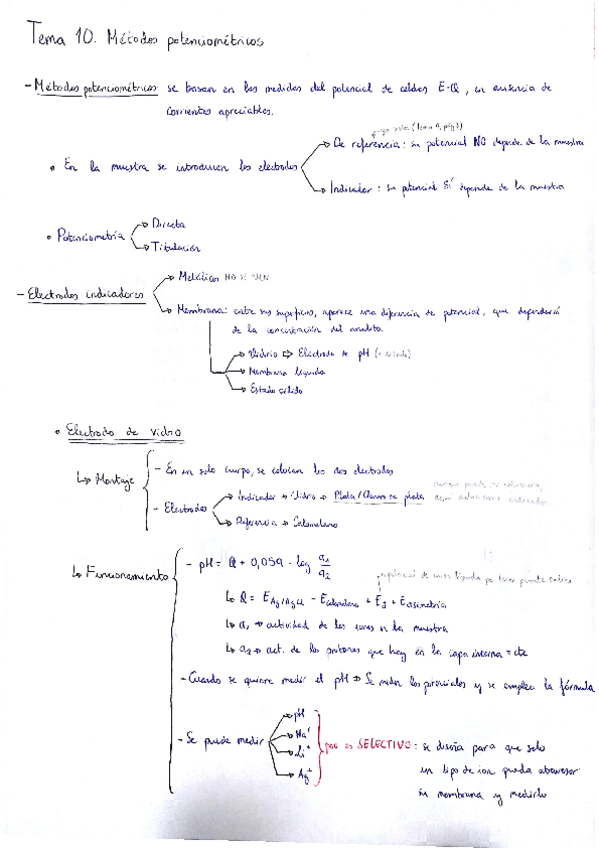 Tema 10. Métodos potenciométricos
- Métodos potenciométricos se basan en las medidas del potencial de celdas E-Q, en ausencia de
corrientes apreciables.
De referencia: su potencial NO depende de la muestra
• En la muestra se introducen los electrodos
Indicador: su potencial SÍ depende de la muestra
Directa
• Potenciometría
Titulación
Metálicos NO SE VEN
- Electrodos indicadores
Membrana: entre sus superficies, aparece una diferencia de potencial, que dependerá
de la concentración del analito.
Vidrio ⇨ Electrodo de pH
Membrana líquida
Estado sólido
• Electrodo de vidrio
↳ Montaje
- En un solo cuerpo, se colocan los dos electrodos
- Electrodos
Indicador → Vidrio → Plata/Cloruro de plata
Referencia → Calomelano
↳ Funcionamiento
- pH = Q + 0,059 · log a1/a2
↳ Q = E Ag/AgCl - E calomelano + E J + E asimetría
↳ a1 → actividad de los iones en la muestra
↳ a2 → act. de los protones que hay en la capa interna = cte
- Cuando se quiere medir el pH ⇒ Se miden los potenciales y se emplea la fórmula
- Se puede medir
pH
Na+
Li+
Ag+
pero es SELECTIVO: se diseña para que solo
un tipo de ion pueda atravesar
su membrana y medirlo